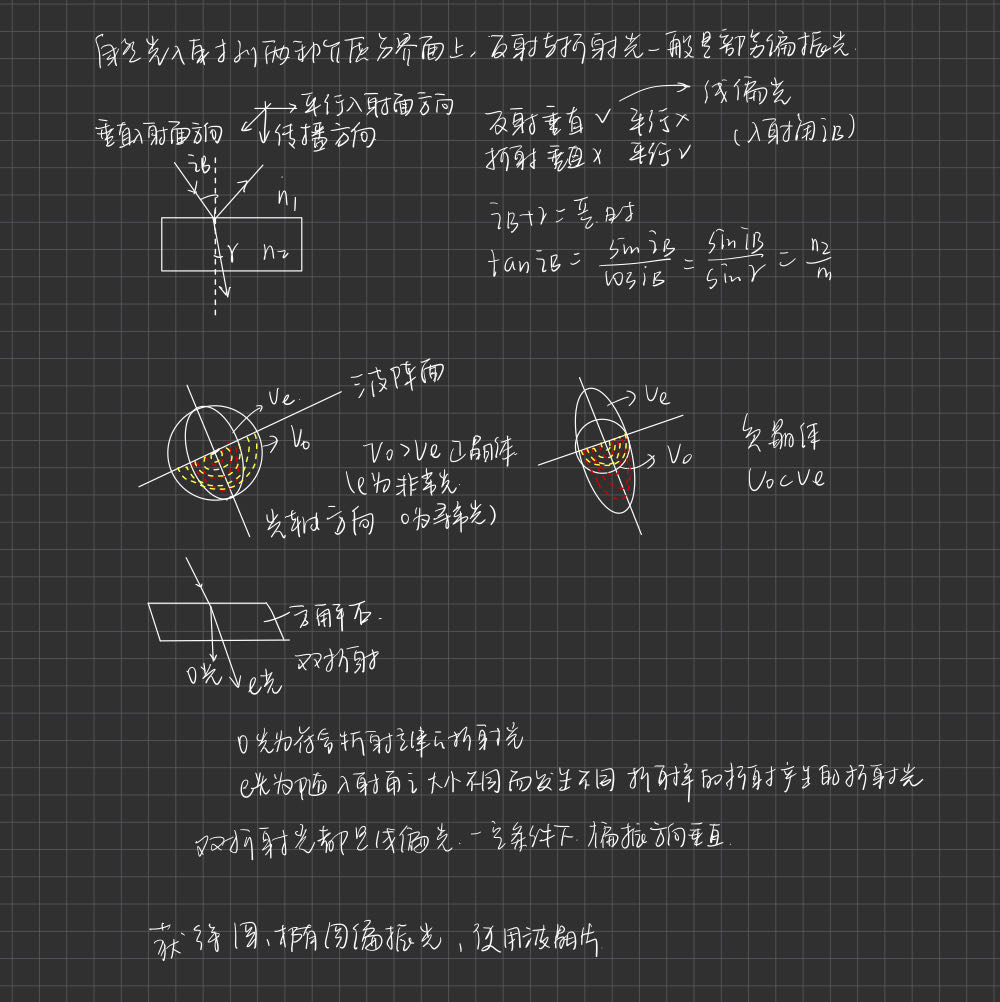 自然光入射到两种介质分界面上，反射与折射光一般是部分偏振光.
平行入射面方向
垂直入射面方向
传播方向
反射垂直√ 平行×
折射垂直× 平行√
线偏光
(入射角iB)
iB
n1
r n2
iB+r= 时
tan iB = sin iB / cos iB = sin iB / sin r = n2 / n1
波阵面
Ve.
Vo
Vo>Ve 正晶体
(e为非常光.
o为寻常光)
光轴方向
Ve
Vo
负晶体
Vo<Ve
方解石.
双折射
o光
e光
o光为符合折射定律的折射光
e光为随入射角之大小不同而发生不同折射率的折射产生的折射光
双折射光都是线偏光.一定条件下.偏振方向垂直.
获得圆、椭圆偏振光，使用波晶片.